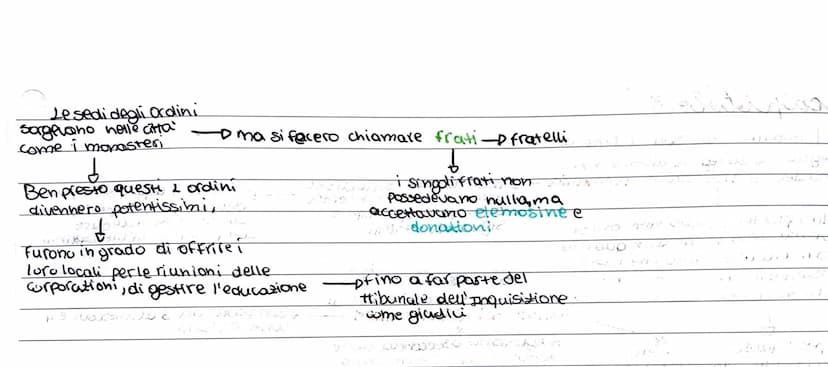 Le sedi degli ordini
sorgevano nelle città → ma si fecero chiamare frati → fratelli
come i monasteri
↓
Ben presto questi 2 ordini
divennero potentissimi,
↓
i singoli frati non
possedevano nulla, ma
accettavano elemosine e
donazioni
↓
Furono in grado di offrire i
loro locali per le riunioni delle
corporazioni, di gestire l'educazione → fino a far parte del
tribunale dell'Inquisizione
come giudici